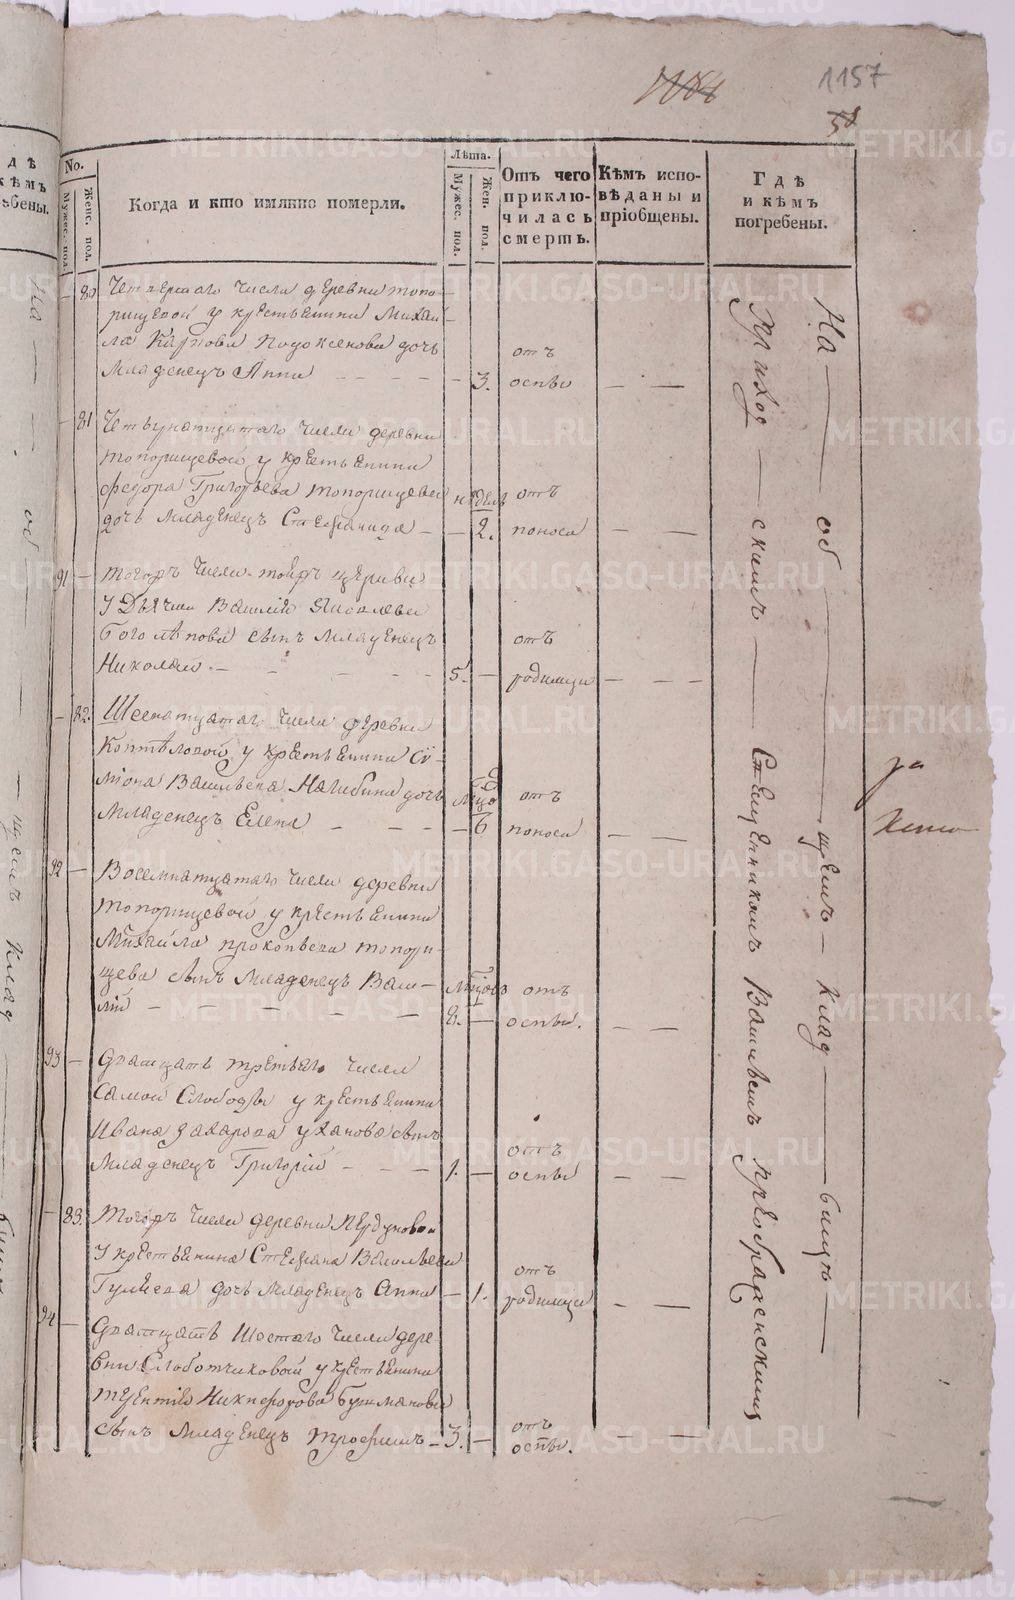 1157
58
METRIKI.GASO-URAL.RU
No.
Мужес. пол.
Женс. пол.
Когда и кто имянно померли.
Лѣта.
Мужес. пол.
Жен. пол.
Отъ чего приключилась смерть.
Кѣмъ исповѣданы и пріобщены.
Гдѣ и кѣмъ погребены.
80 Четвертаго числа деревни топо-
рищевой у крестьянина Михаи-
ла Карпова дочь
младенецъ Анна 3. отъ оспы
81 числа деревни
топорищевой у крестьянина
Федора Григорьева топорищева недель отъ
дочь младенецъ Степанида 2. поноса
91 Тогожъ числа тоижъ церкви
у Дьячка Василія Яковлева
Боголѣпова сынъ младенецъ отъ
Николай 5. родимца
82. числа деревни
Коптѣловой у крестьянина Си-
міона Васильева Нагибина дочь отъ
младенецъ Елена 6 поноса
92 Восемнатцатаго числа деревни
топорищевой у крестьянина
Михайла прокопьева топори-
щева сынъ младенецъ Васи- отъ
лій 8. оспы.
93 Дватцать третьяго числа
самой Слободы у крестьянина
Ивана Захарова уханова сынъ отъ
младенецъ Григорій 1. оспы
83. Тогожъ числа деревни
у крестьянина Стефана Васильева отъ
Гуляева дочь младенецъ Анна 1. родимца
94 Дватцать Шестаго числа дере-
вни Слоботчиковой у крестьянина
терентія Никифорова
сынъ младенецъ трофимъ 3. отъ оспы.
На об щемъ клад бищѣ
Приход скимъ Священникомъ Васильемъ преображенскимъ